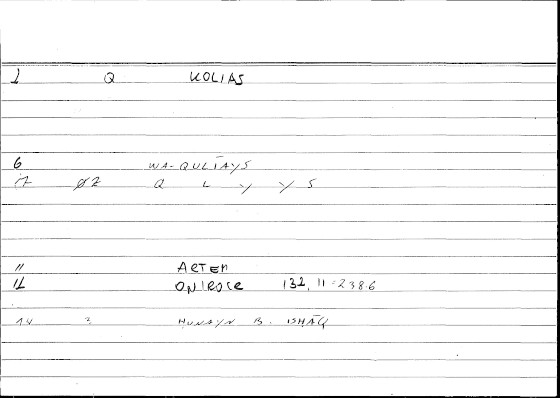 1 Q KOLIAS
6 WA-QULIAYS
7 02 Q L Y Y S
11 ARTEM
12 ONIROCR 132, 11 = 238.6
14 3 HUNAYN B. ISHĀQ